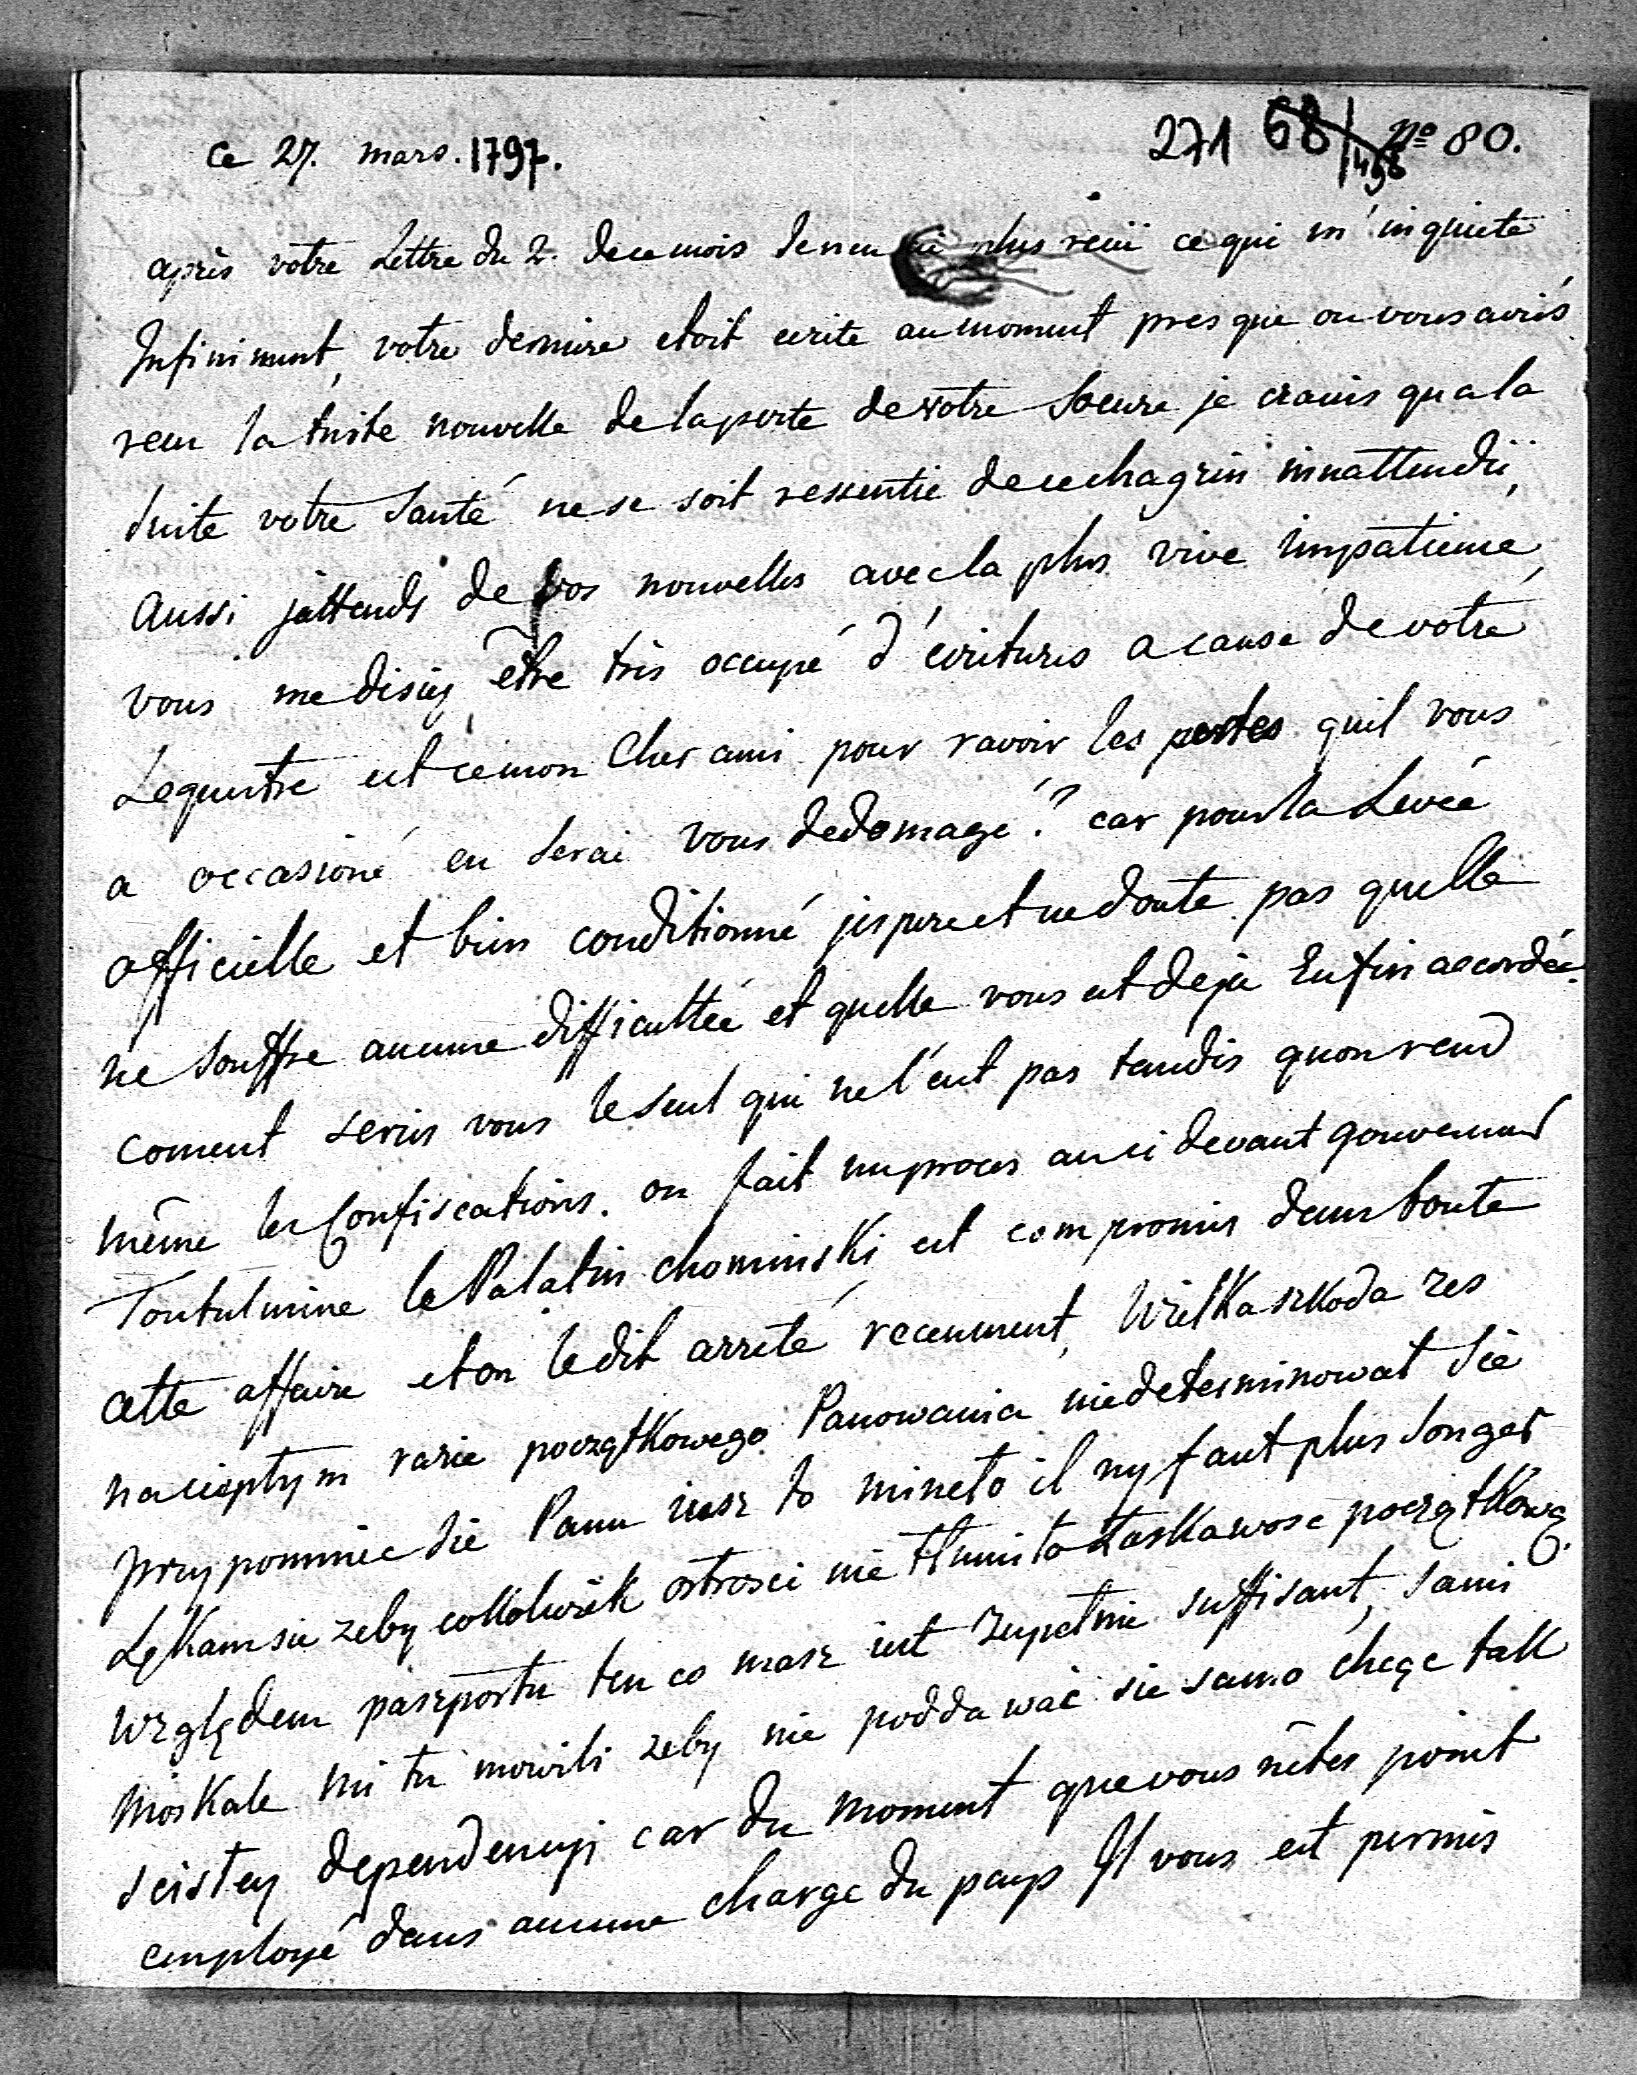 ce 27. mars. 1797.
271 68/498 No 80.
après votre Lettre du 2. de ce mois Je nen ai plus reüü ce qui m'inquiete
Infiniment, votre derniere etoit ecrite au moment presque ou vous aviés
recu la triste nouvelle de la perte de votre Soeure je crains qu a la
suite votre Santé ne se soit ressentie de ce chagrin innattendü,
Aussi j'attends de vos nouvelles avec la plus vive impatience,
vous me disiez être très occupé d'écritures a cause de votre
Sequestre est ce mon Cher ami pour ravoir les pertes quil vous
a occasioné en Serai vous dedomagé? car pour la Levée
officielle et bien conditionné jespere et ne doute pas quelle
ne Souffre aucune difficultée et quelle vous est deja Enfin accordée.
coment series vous le seul qui ne l'eut pas tandis quon rend
même les Confiscations. on fait un proces au ci devant gouverneur
Toutulmine le Palatin chominski est compromis dans toute
cette affaire et on le dit arrêté recemment, Wielka szkoda zes
na cieptym razie początkowego Panowania niedeterminowat Sie
przypomniec Sie Panu iusz to mineto il ny faut plus Songer
Lękam sie zeby cokkolwiek ostrosci nie tłumito Łaskawosc początkową.
Względem paszportu ten co masz iest zupetnie suffisant, sami
Moskale mi tu mowili zeby nie poddawać sie samo chcąc tak
scistey dependencyi car du moment que vous nêtes point
employé dans aucune charge du pays Il vous est permis